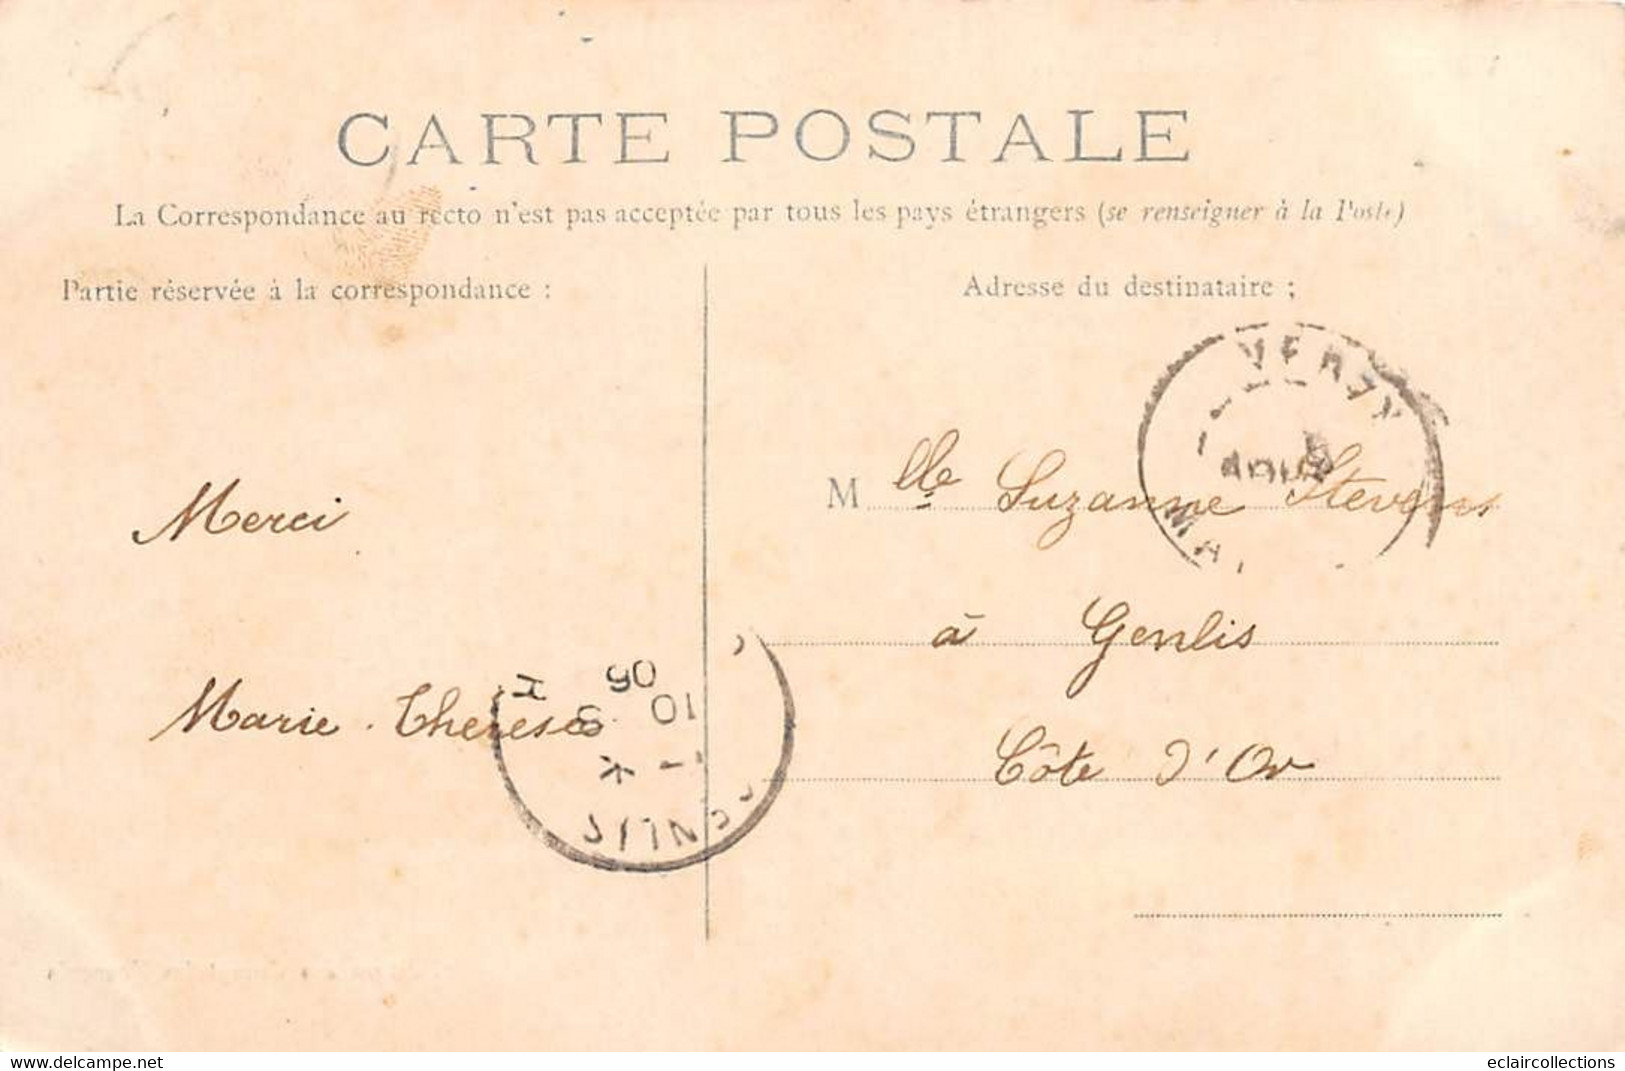 CARTE POSTALE
La Correspondance au recto n'est pas acceptée par tous les pays étrangers (se renseigner à la Poste)
Partie réservée à la correspondance :
Adresse du destinataire :
VERZY
AOUT
Merci
Mlle Suzanne Stevens
à Genlis
Marie-Therese
Côte d'Or
10 8 06
Delcampe.net
eclaircollections